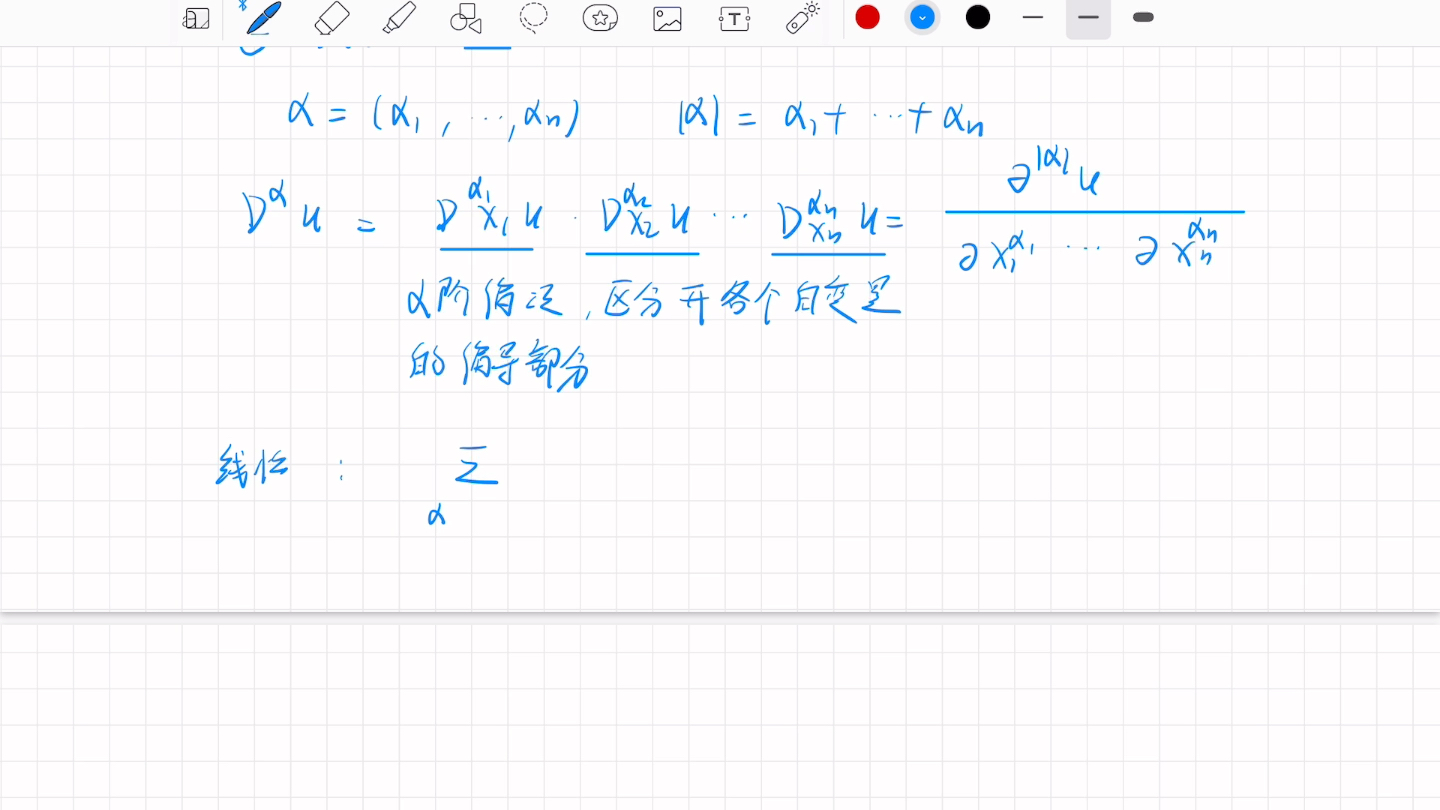 α = (α₁, ⋯, αₙ) |α| = α₁ + ⋯ + αₙ
D^α u = D^{α₁}_{x₁} u · D^{α₂}_{x₂} u ⋯ D^{αₙ}_{xₙ} u = ∂^{|α|} u / ∂x₁^{α₁} ⋯ ∂xₙ^{αₙ}
α阶偏泛,区分开各个自变量
的偏导部分
线性: Σ_α